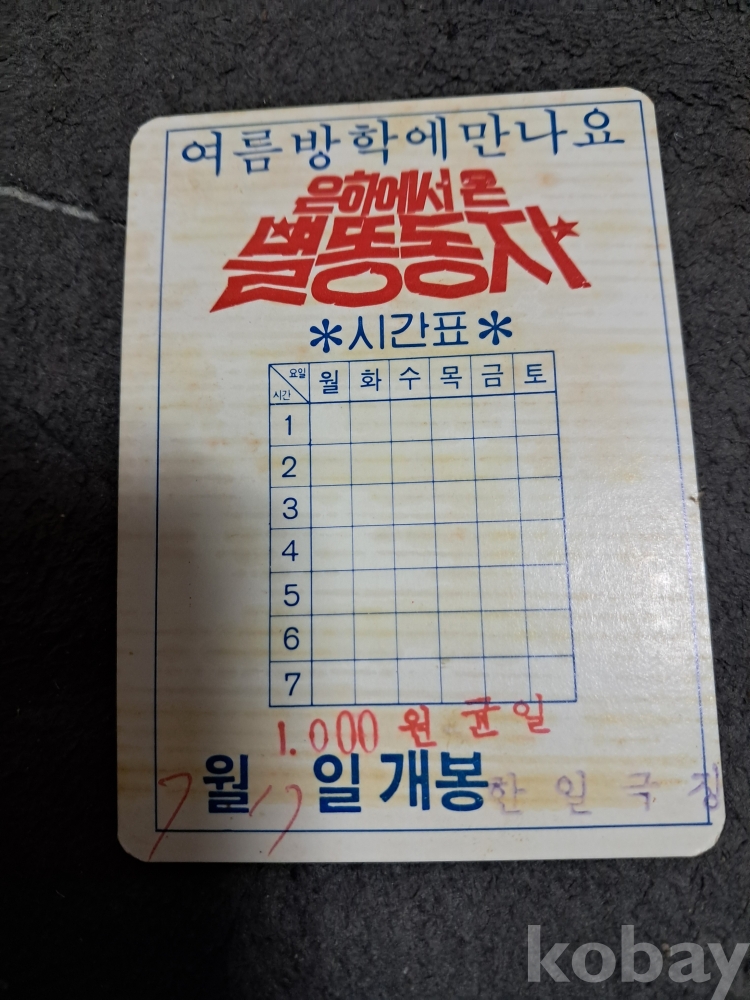 여름방학에만나요
은하에서 온
별똥동자
*시간표*
요일
시간
월 화 수 목 금 토
1
2
3
4
5
6
7
1.000 원 균일
7월 17일개봉 한일극장
kobay